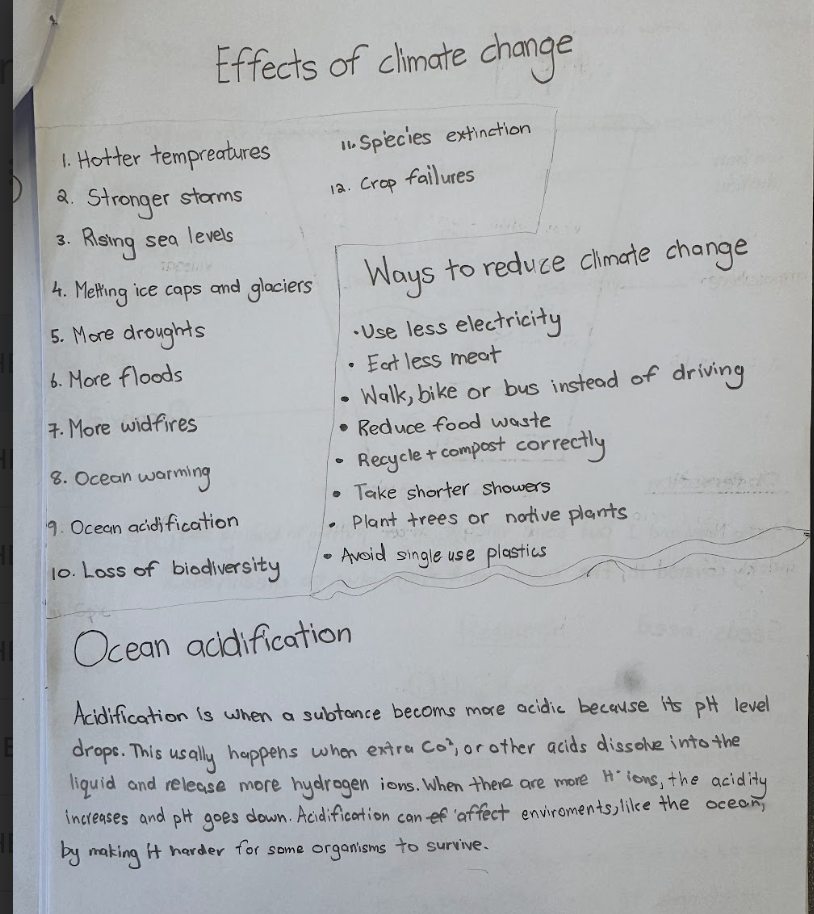 Effects of climate change
1. Hotter tempreatures
2. Stronger storms
3. Rising sea levels
4. Melting ice caps and glaciers
5. More droughts
6. More floods
7. More widfires
8. Ocean warming
9. Ocean acidification
10. Loss of biodiversity
11. Spiecies extinction
12. Crop failures
Ways to reduce climate change
• Use less electricity
• Eat less meat
• Walk, bike or bus instead of driving
• Reduce food waste
• Recycle + compost correctly
• Take shorter showers
• Plant trees or native plants
• Avoid single use plastics
Ocean acidification
Acidification is when a subtance becoms more acidic because its pH level
drops. This usally happens when extra Co², or other acids dissolve into the
liquid and release more hydrogen ions. When there are more H⁺ ions, the acidity
increases and pH goes down. Acidification can affect enviroments, like the ocean,
by making it harder for some organisms to survive.